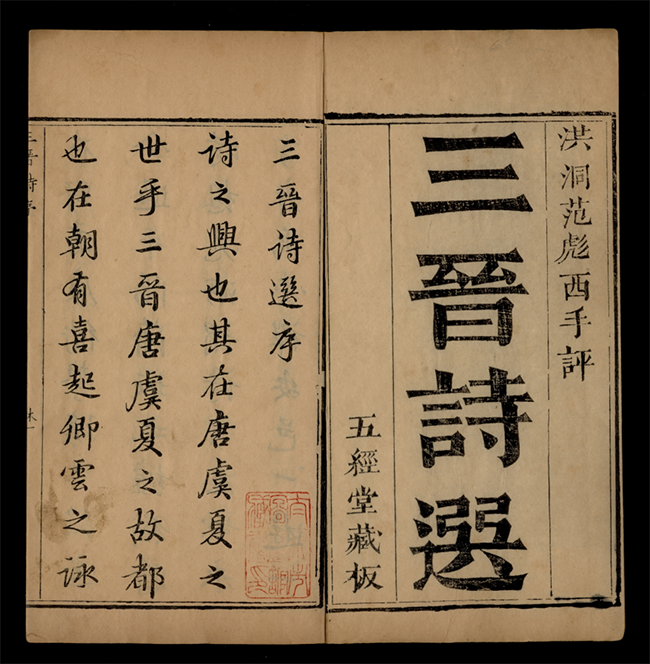 洪洞范彪西手評
三晉詩選
五經堂藏板
三晉詩選序
詩之興也其在唐虞夏之
世乎三晉唐虞夏之故都
也在朝有喜起卿雲之詠
三晉詩序